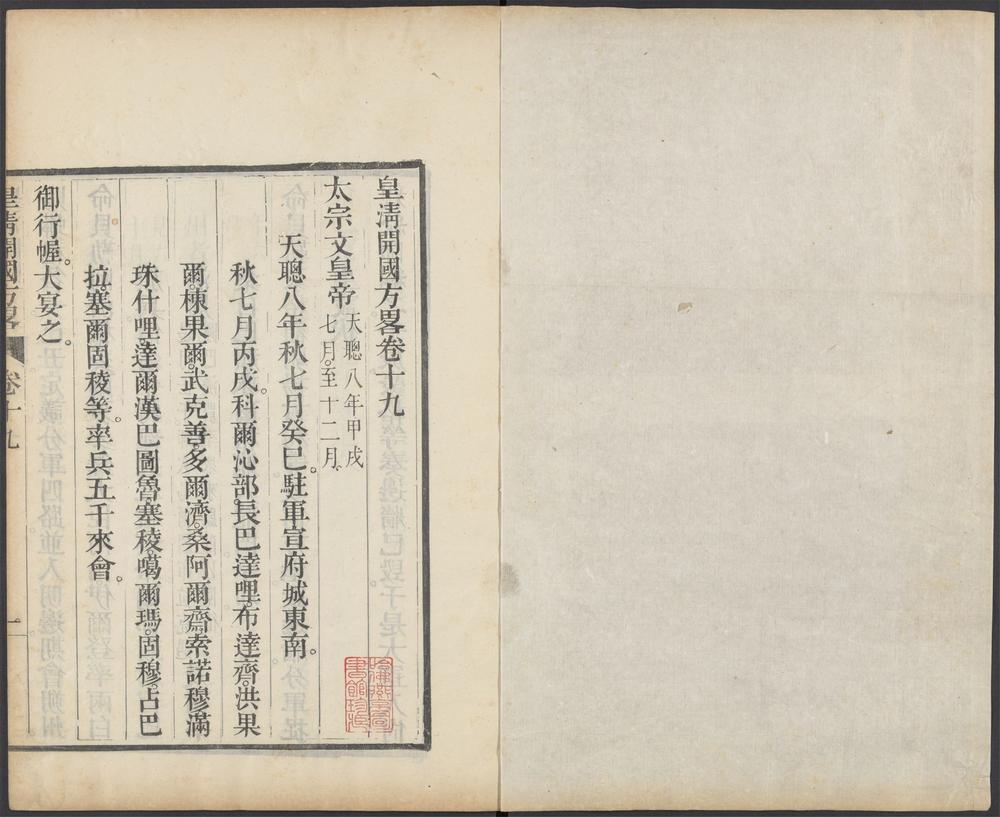 皇清開國方畧卷十九
太宗文皇帝天聰八年甲戌
七月至十二月
天聰八年秋七月癸巳駐軍宣府城東南。
秋七月丙戌科爾沁部長巴達哩布達齊洪果
爾棟果爾武克善多爾濟桑阿爾齋索諾穆滿
珠什哩達爾漢巴圖魯塞稜噶爾瑪固穆占巴
拉塞爾固稜等。率兵五千來會。
御行幄。大宴之。
皇清開國方畧
卷十九
一